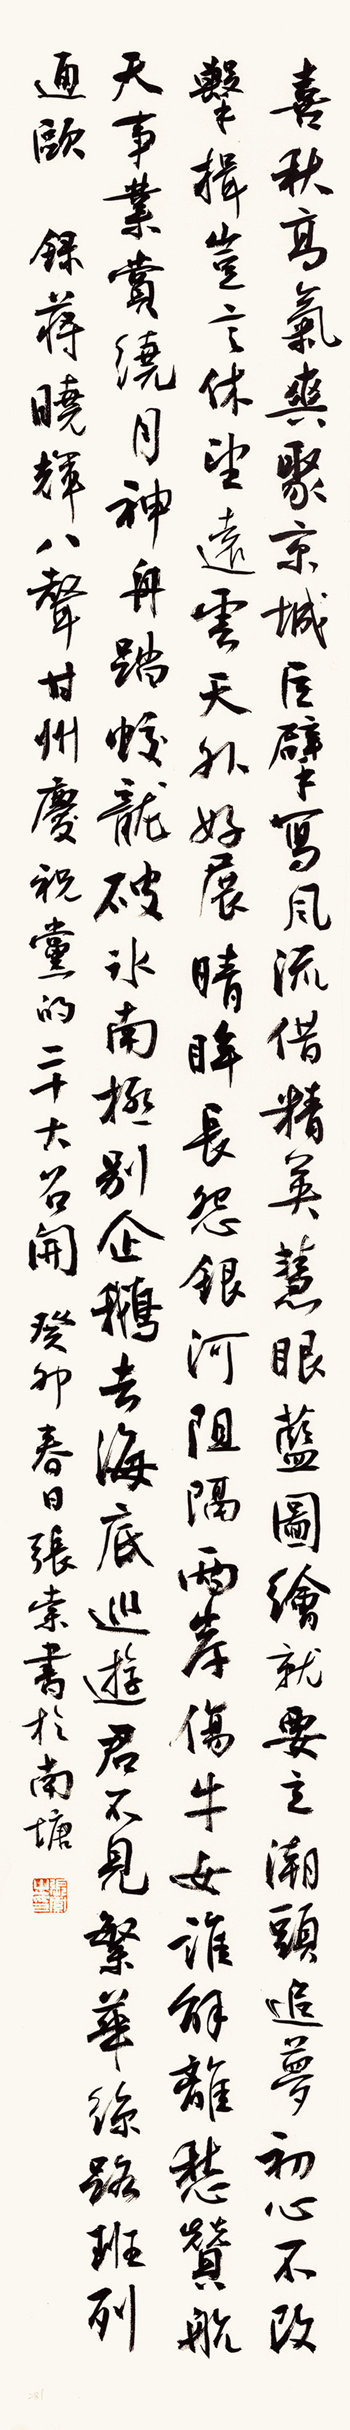 喜秋高氣爽聚京城巨擘寫風流借精英慧眼藍圖繪就要立潮頭追夢初心不改
擊楫豈言休望遠雲天外好展晴眸長怨銀河阻隔兩岸傷牛女誰解離愁贊航
天事業賞繞月神舟踏蛟龍破冰南極別企鵝去海底巡遊君不見繁華絲路班列
通歐 錄蔣曉輝八聲甘州慶祝黨的二十大召開 癸卯春日張索書於南塘